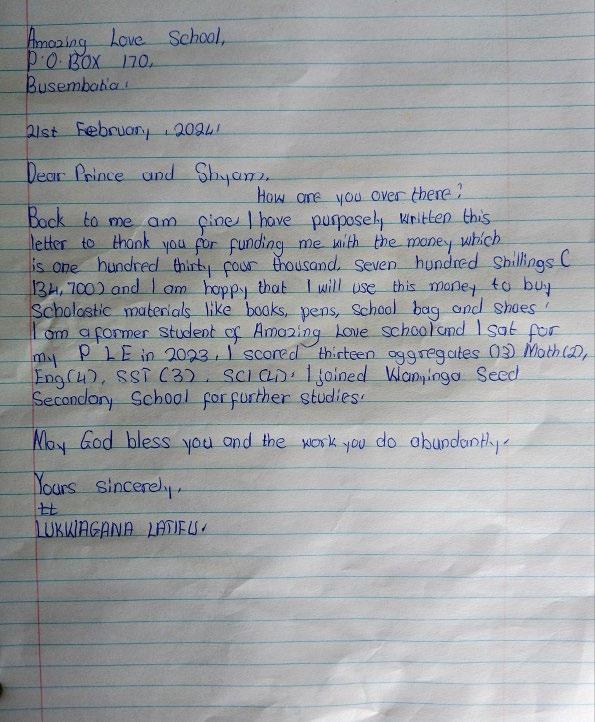 Amazing Love School,
P.O. BOX 170,
Busembatia.
21st February, 2024.
Dear Prince and Shyam,
How are you over there?
Back to me am fine I have purposely written this
letter to thank you for funding me with the money which
is one hundred thirty four thousand, seven hundred shillings (
134,700) and I am happy that I will use this money to buy
Scholastic materials like books, pens, school bag and shoes.
I am a former student of Amazing Love school and I sat for
my P L E in 2023, I scored thirteen aggregates (13) Math (2),
Eng (4), SST (3), SCI (4). I joined Wanyinga Seed
Secondary School for further studies.
May God bless you and the work you do abundantly.
Yours sincerely,
tt
LUKWAGANA LATIFU.